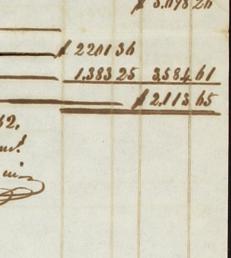 $ 5,698 26
$ 2201 36
1,383 25 3,584 61
$ 2,113 65